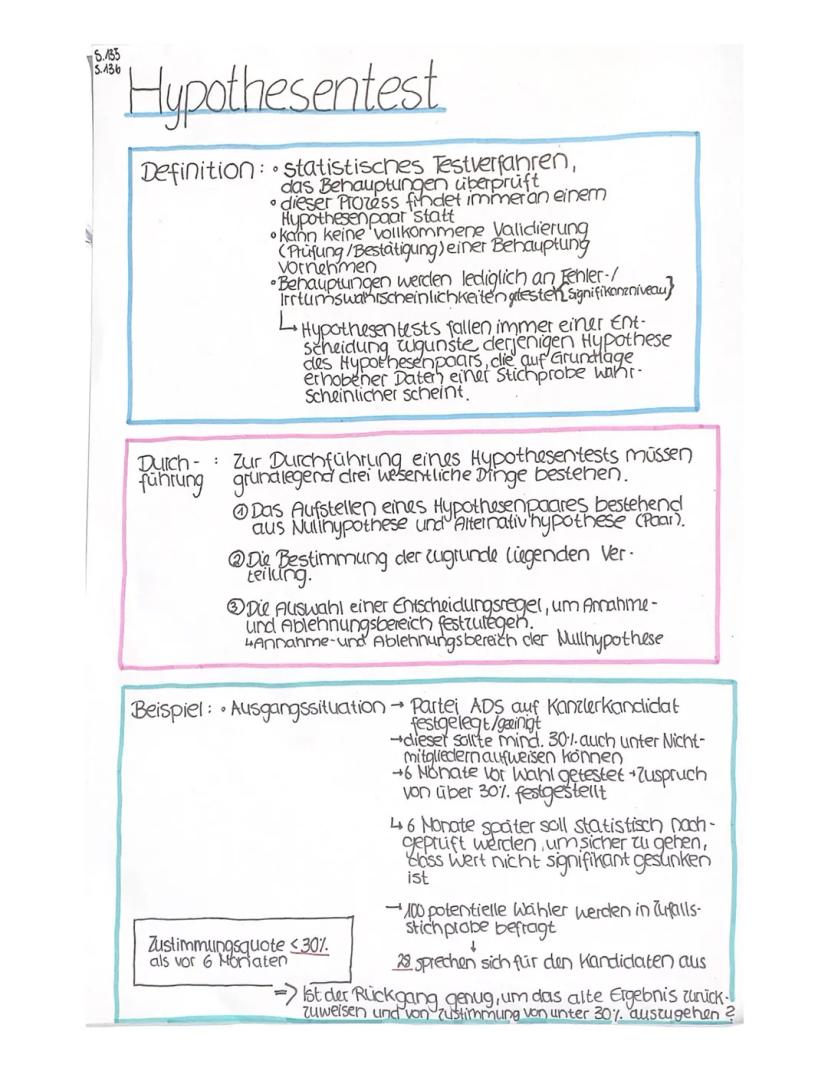 S.135
S.136
Hypothesentest
Definition: • statistisches Testverfahren,
das Behauptungen überprüft
• dieser Prozess findet immer an einem
Hypothesenpaar statt
• kann keine vollkommene Validierung
(Prüfung/Bestätigung) einer Behauptung
vornehmen
• Behauptungen werden lediglich an Fehler-/
Irrtumswahrscheinlichkeiten gtesten {Signifikanzniveau}
↳ Hypothesentests fallen immer einer Ent-
scheidung zugunste derjenigen Hypothese
des Hypothesenpaars, die auf Grundlage
erhobener Daten einer Stichprobe wahr-
scheinlicher scheint.
Durch- : Zur Durchführung eines Hypothesentests müssen
führung grundlegend drei wesentliche Dinge bestehen.
① Das Aufstellen eines Hypothesenpaares bestehend
aus Nullhypothese und Alternativhypothese (Paar).
② Die Bestimmung der zugrunde liegenden Ver-
teilung.
③ Die Auswahl einer Entscheidungsregel, um Annahme-
und Ablehnungsbereich festzulegen.
↳ Annahme- und Ablehnungsbereich der Nullhypothese
Beispiel: • Ausgangssituation → Partei ADS auf Kanzlerkandidat
festgelegt/geeinigt
→ dieser sollte mind. 30% auch unter Nicht-
mitgliedern aufweisen können
→ 6 Monate vor Wahl getestet → Zuspruch
von über 30% festgestellt
↳ 6 Monate später soll statistisch nach-
geprüft werden, um sicher zu gehen,
dass Wert nicht signifikant gesunken
ist
→ 100 potentielle Wähler werden in Zufalls-
stichprobe befragt
↓
28 sprechen sich für den Kandidaten aus
Zustimmungsquote ≤ 30%
als vor 6 Monaten
=> Ist der Rückgang genug, um das alte Ergebnis zurück-
zuweisen und von Zustimmung von unter 30% auszugehen?